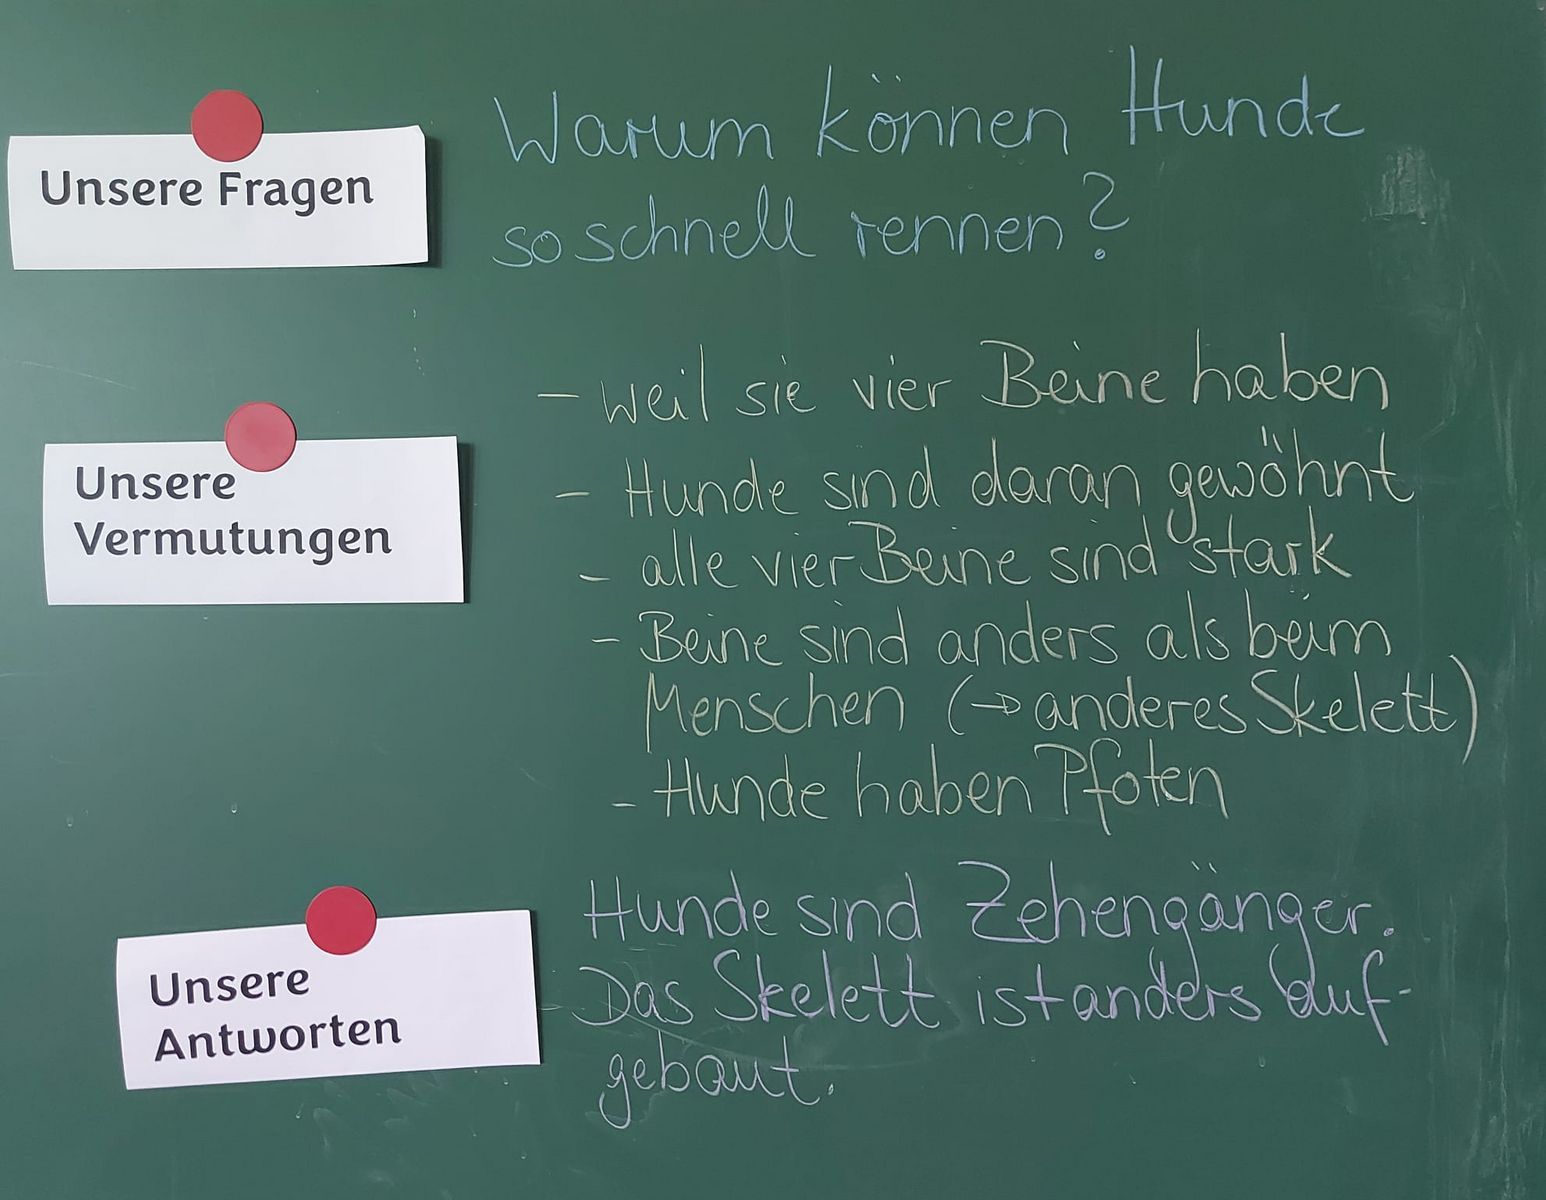 Unsere Fragen
Warum können Hunde
so schnell rennen?
Unsere
Vermutungen
- weil sie vier Beine haben
- Hunde sind daran gewöhnt
- alle vier Beine sind stark
- Beine sind anders als beim
Menschen (→ anderes Skelett)
- Hunde haben Pfoten
Unsere
Antworten
Hunde sind Zehengänger.
Das Skelett ist anders auf-
gebaut.